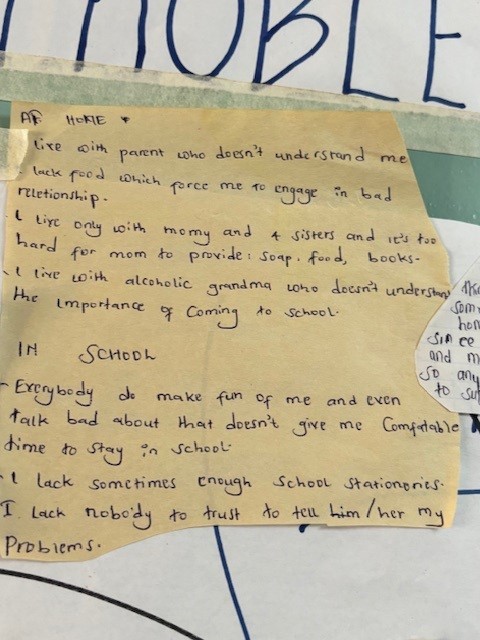 NOBLE
AT HOME *
live with parent who doesn't understand me
. lack food which force me to engage in bad
reletionship.
. I live only with momy and 4 sisters and it's too
hard for mom to provide: soap. food, books-
. I live with alcoholic grandma who doesn't understand
the importance of Coming to school.
IN SCHOOL
- Everybody do make fun of me and even
talk bad about that doesn't give me Comfatable
time to stay in school.
- I lack sometimes enough school stationories.
I lack nobody to trust to tell him/her my
Problems.
som
hon
since
and m
so any
to su